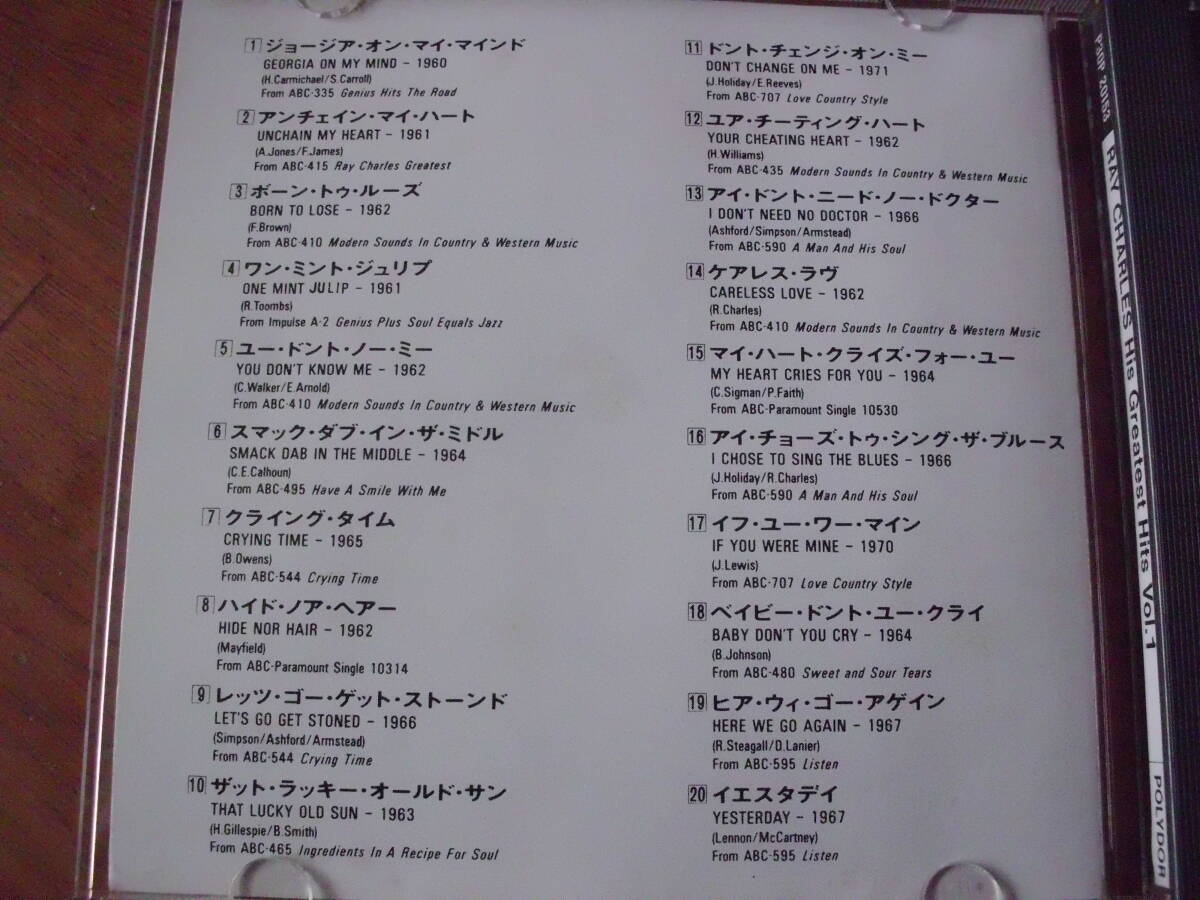 1 ジョージア・オン・マイ・マインド
GEORGIA ON MY MIND – 1960
(H.Carmichael/S.Carroll)
From ABC-335 Genius Hits The Road
2 アンチェイン・マイ・ハート
UNCHAIN MY HEART – 1961
(A.Jones/F.James)
From ABC-415 Ray Charles Greatest
3 ボーン・トゥ・ルーズ
BORN TO LOSE – 1962
(F.Brown)
From ABC-410 Modern Sounds In Country & Western Music
4 ワン・ミント・ジュリプ
ONE MINT JULIP – 1961
(R.Toombs)
From Impulse A-2 Genius Plus Soul Equals Jazz
5 ユー・ドント・ノー・ミー
YOU DON'T KNOW ME – 1962
(C.Walker/E.Arnold)
From ABC-410 Modern Sounds In Country & Western Music
6 スマック・ダブ・イン・ザ・ミドル
SMACK DAB IN THE MIDDLE – 1964
(C.E.Calhoun)
From ABC-495 Have A Smile With Me
7 クライング・タイム
CRYING TIME – 1965
(B.Owens)
From ABC-544 Crying Time
8 ハイド・ノア・ヘアー
HIDE NOR HAIR – 1962
(Mayfield)
From ABC-Paramount Single 10314
9 レッツ・ゴー・ゲット・ストーンド
LET'S GO GET STONED – 1966
(Simpson/Ashford/Armstead)
From ABC-544 Crying Time
10 ザット・ラッキー・オールド・サン
THAT LUCKY OLD SUN – 1963
(H.Gillespie/B.Smith)
From ABC-465 Ingredients In A Recipe For Soul
11 ドント・チェンジ・オン・ミー
DON'T CHANGE ON ME – 1971
(J.Holiday/E.Reeves)
From ABC-707 Love Country Style
12 ユア・チーティング・ハート
YOUR CHEATING HEART – 1962
(H.Williams)
From ABC-435 Modern Sounds In Country & Western Music
13 アイ・ドント・ニード・ノー・ドクター
I DON'T NEED NO DOCTOR – 1966
(Ashford/Simpson/Armstead)
From ABC-590 A Man And His Soul
14 ケアレス・ラヴ
CARELESS LOVE – 1962
(R.Charles)
From ABC-410 Modern Sounds In Country & Western Music
15 マイ・ハート・クライズ・フォー・ユー
MY HEART CRIES FOR YOU – 1964
(C.Sigman/P.Faith)
From ABC-Paramount Single 10530
16 アイ・チョーズ・トゥ・シング・ザ・ブルース
I CHOSE TO SING THE BLUES – 1966
(J.Holiday/R.Charles)
From ABC-590 A Man And His Soul
17 イフ・ユー・ワー・マイン
IF YOU WERE MINE – 1970
(J.Lewis)
From ABC-707 Love Country Style
18 ベイビー・ドント・ユー・クライ
BABY DON'T YOU CRY – 1964
(B.Johnson)
From ABC-480 Sweet and Sour Tears
19 ヒア・ウィ・ゴー・アゲイン
HERE WE GO AGAIN – 1967
(R.Steagall/D.Lanier)
From ABC-595 Listen
20 イエスタデイ
YESTERDAY – 1967
(Lennon/McCartney)
From ABC-595 Listen
P30P 20153 RAY CHARLES His Greatest Hits Vol.1 POLYDOR